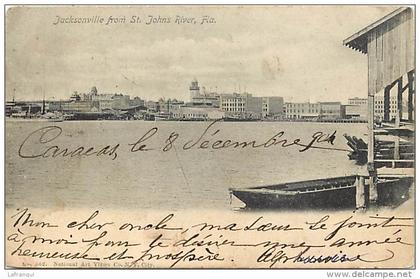 Jacksonville from St. Johns River, Fla.
Caracas, le 8 decembre 904
Mon cher oncle, ma sœur se joint
à moi pour te désirer une année
heureuse et prospère. Alphonsine
No. 302. National Art Views Co. N.Y. City.
LaFrance